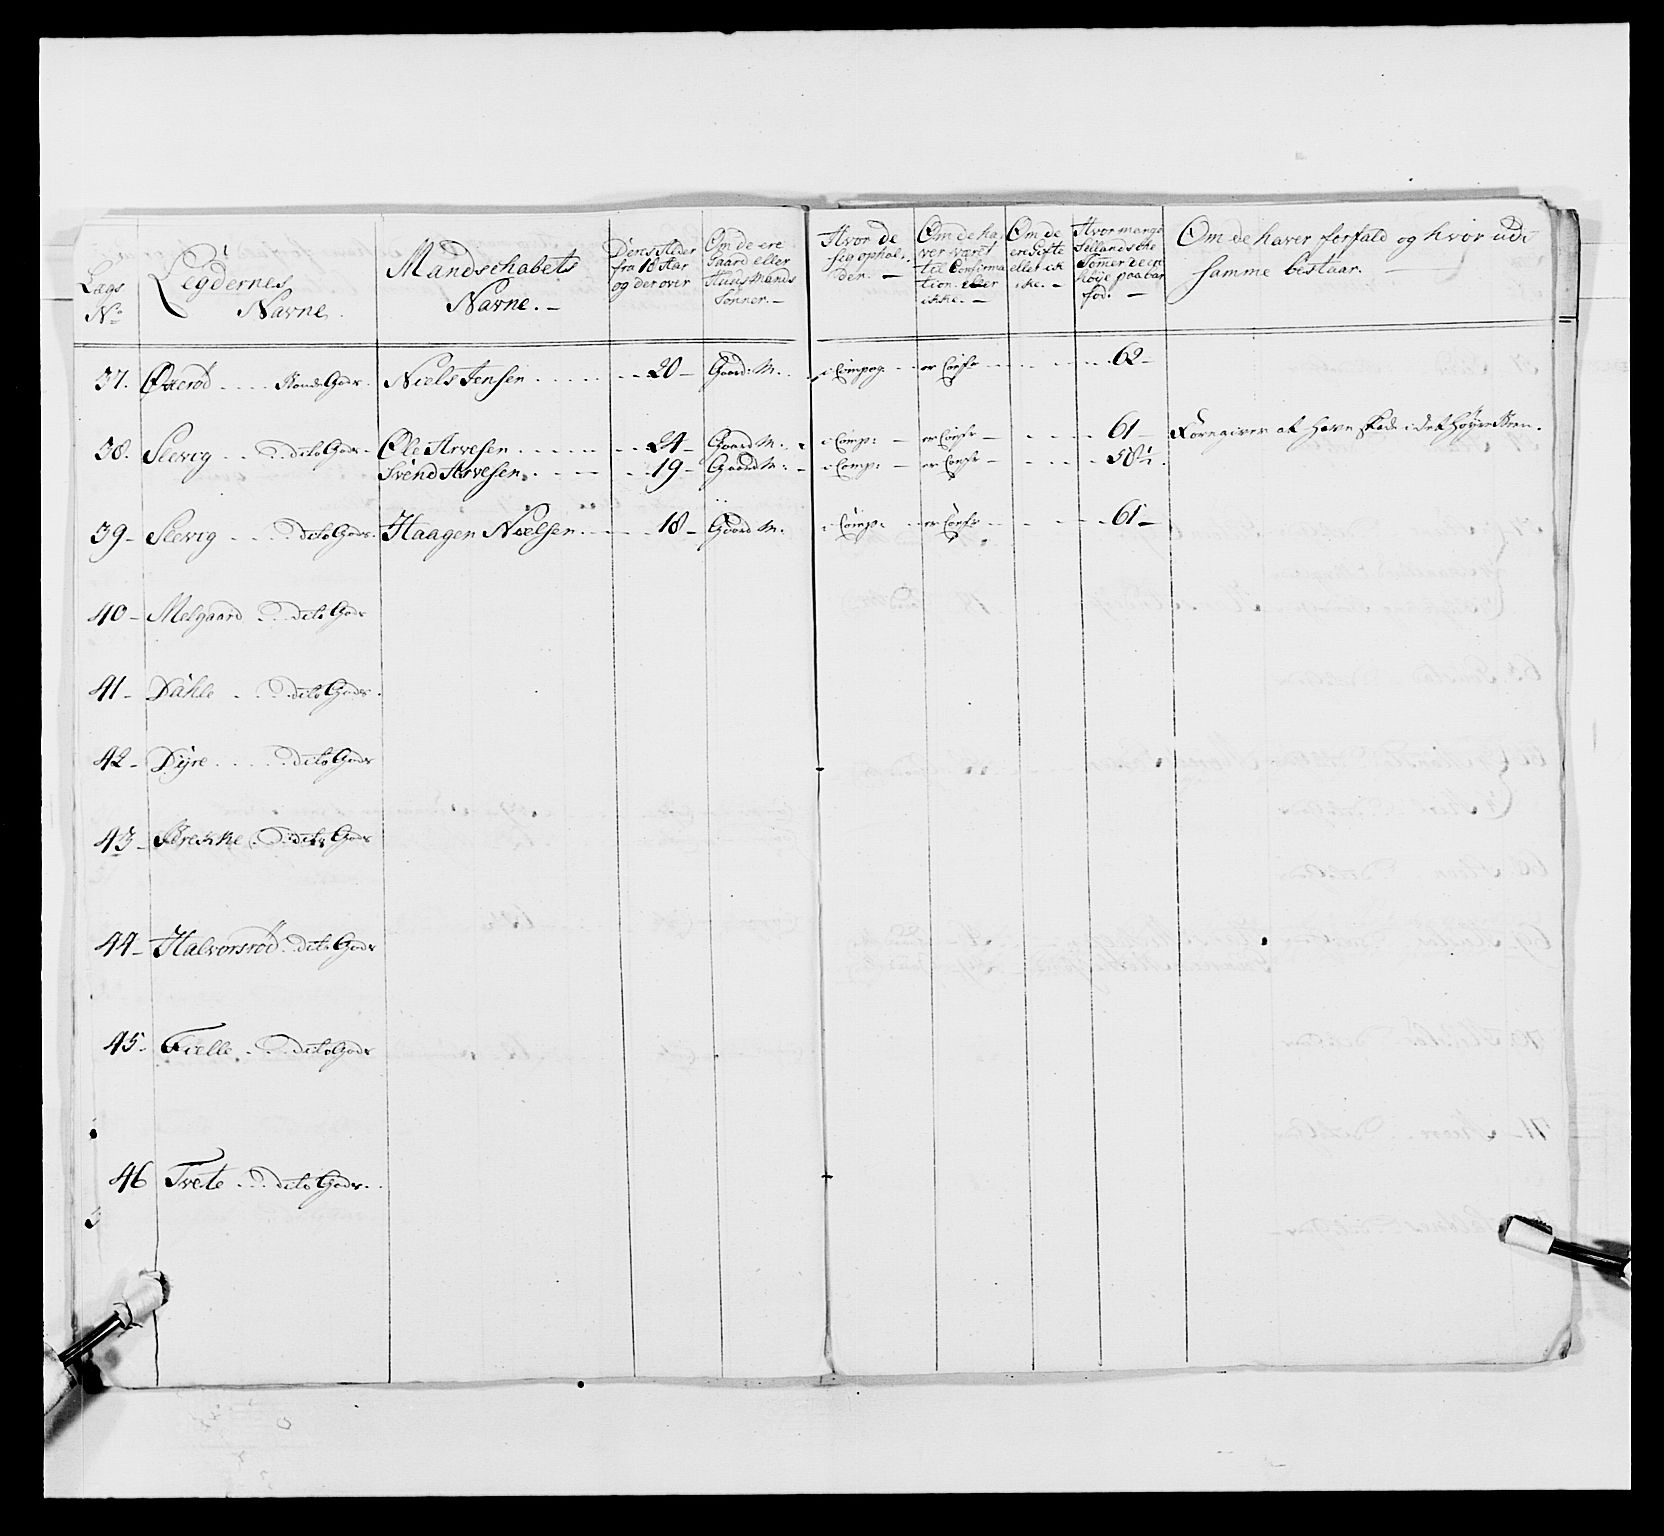 Lægs No
Legdernes Navne.
Mandschabets Navne. —
Deres Alder fra 18 Aar og derover
Om de ere Gaard eller Huus Mands Sønner. —
Hvor de sig ophol- der. —
Om de ha- ver været til Confirma- tion eller ikke. —
Om de ere Gifte eller ik- ke. —
Hvor mange Sellandsche Tomer de er høye paa bar fod. —
Om de haver forfald og hvor udi samme bestaar. —
37. Otterød .... Gods. Niels Jensen ..... 20 — Gaard M. i Compag: — er Conf: .... 62 —
38. Slevig .... dito Gods. Ole Arvesen ..... 24 — Gaard M. i Comp: — er Conf: — .... 61 — Foregiver at have skade i det høyre Been.
Svend Arvesen. .... 19 — Gaard M: — i Comp: — er Conf: — .... 58½.
39 — Slevig .... dito Gods. Haagen Nielsen .... 18 — Gaard M. i Comp: .. er Conf: .... 61 —
40 — Melgaard .... dito Gods
41 — Dahle .... dito Gods.
42 — Dyre .... dito Gods
43 — Brekke .... dito Gods
44 — Halvorsrød .. dito Gods
45 — Fielle .... dito Gods
46 Tvete .... dito Gods.